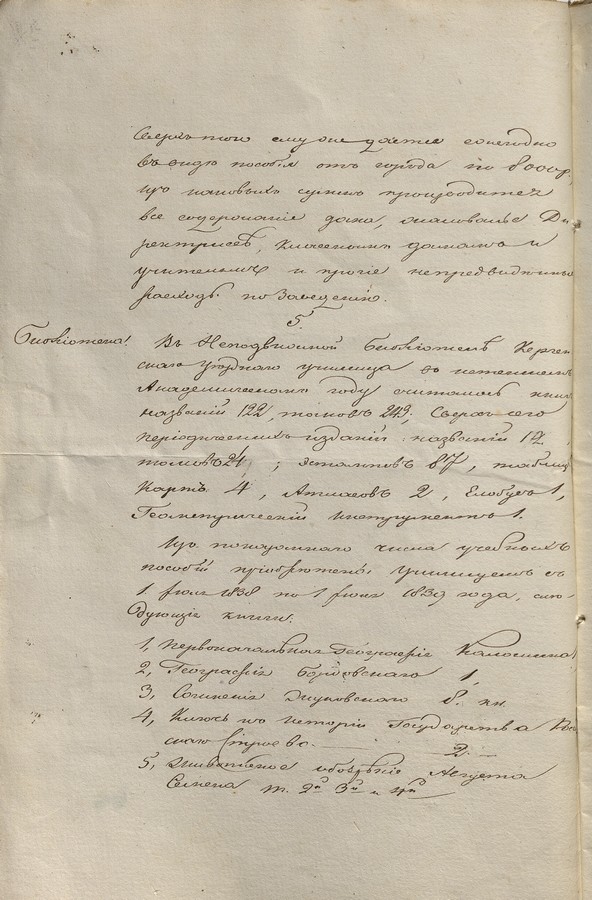 Сверхъ того ему же дается ежегодно
въ видѣ пособія отъ города по 8000 р,
изъ таковыхъ суммъ производится
все содержаніе дома, жалованье Ди
ректрисѣ, класснымъ дамамъ и
учителямъ и прочіе непредвидимые
расходы по Заведенію.
5.
Библіотека.
Въ Неподвижной Библіотекѣ Керчен
скаго уѣзднаго училища въ
Академическомъ году считалось книгъ
названій 122, томовъ 243, Сверхъ сего
періодическихъ изданій: названій 12
томовъ 24, ; эстамповъ 87, таблицъ
Картъ 4, Атласовъ 2, Глобусъ 1,
Геометрическій Инструментъ 1.
Изъ показаннаго числа учебныхъ
пособій пріобрѣтены Училищемъ съ
1 Іюля 1838 по 1 Іюля 1839 года, слѣ
дующіе книги.
1, Первоначальная Географія
2, Географія 1,
3, Сочиненія Жуковскаго 8. кн.
4, Ключъ къ исторіи Государства Рос
скаго Строева. 2.
5, Живописное обозрѣніе Августа
Семена т. 2й 3й и 4й